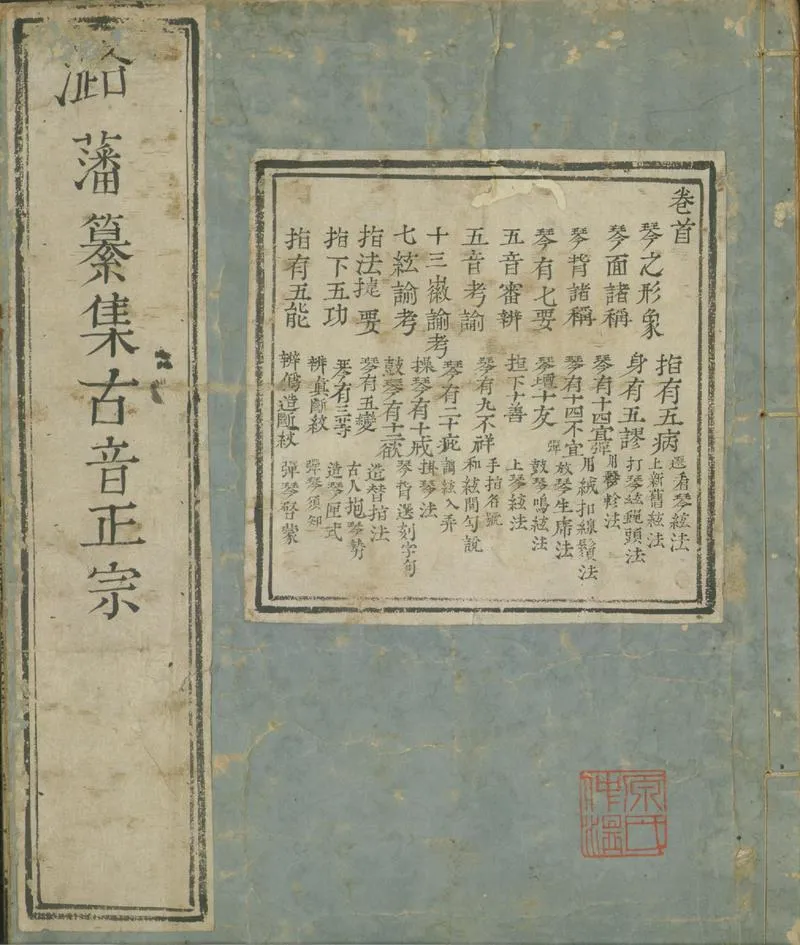 潞藩纂集古音正宗
卷首
琴之形象
琴面諸稱
琴背諸稱
琴有七要
五音審辨
五音考諭
十三徽諭考
七絃諭考
指法㨗要
指下五功
指有五能
指有五病
身有五謬
琴有十四宜彈
琴有十四不宜彈
琴壇十友
指下十善
琴有九不祥
琴有二十疵
操琴有十戒
鼓琴有十三欲
琴有五變
琴有三等
辨真斷紋
辨僞造斷紋
選看琴絃法
上新舊絃法
打琴絃蠅頭法
用軫法
用絨扣線鬚法
放琴生席法
鼓琴鳴絃法
上琴絃法
手指名號
和絃間勾說
調絃入弄
掛琴法
琴背選刻字句
造替指法
古人抱琴勢
造琴匣式
彈琴須知
彈琴啓蒙